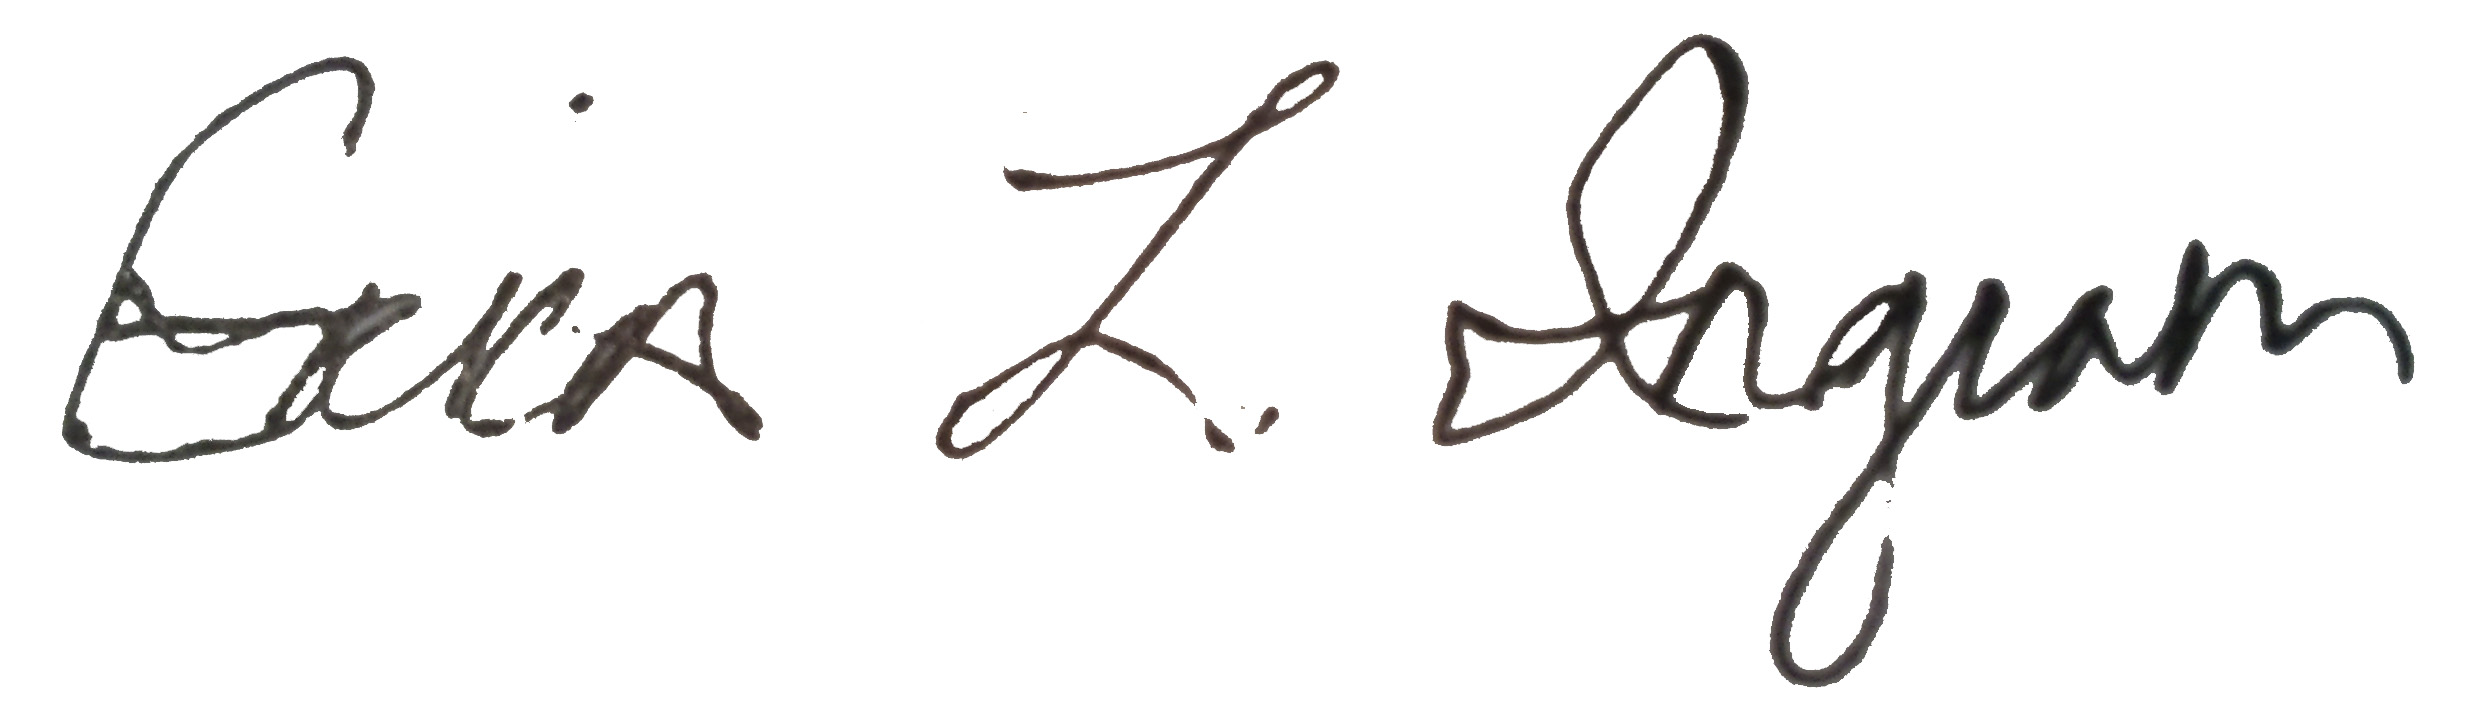 Erica L. Ingram